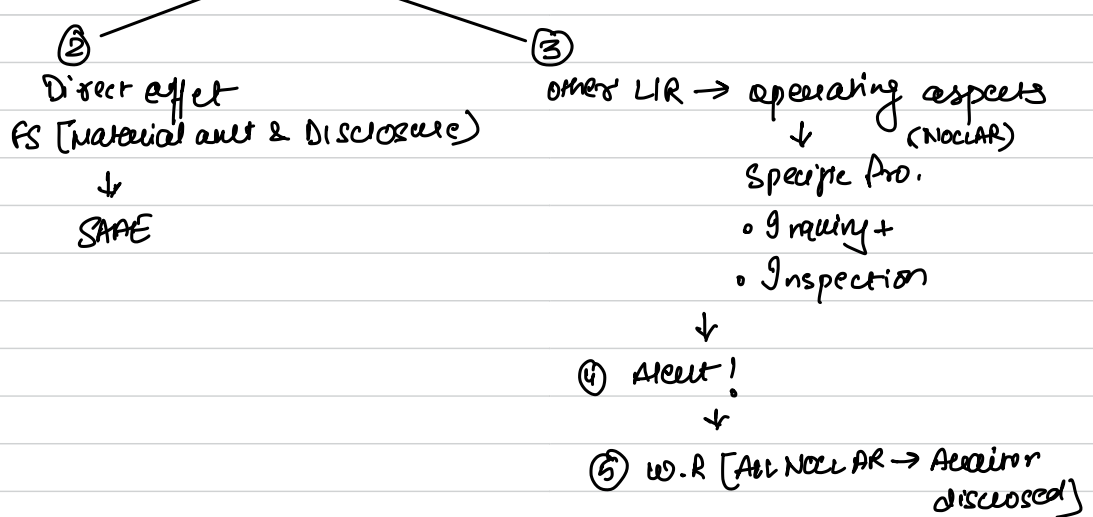 ②
Direct effet
FS [Material amt & Disclosure)
↓
SAAE
③
other LIR → operating aspects
(NOCLAR)
↓
Specific Pro.
• Inquiry +
• Inspection
↓
④ Alert!
↓
⑤ W.R [All NOCLAR → Auditor
disclosed]